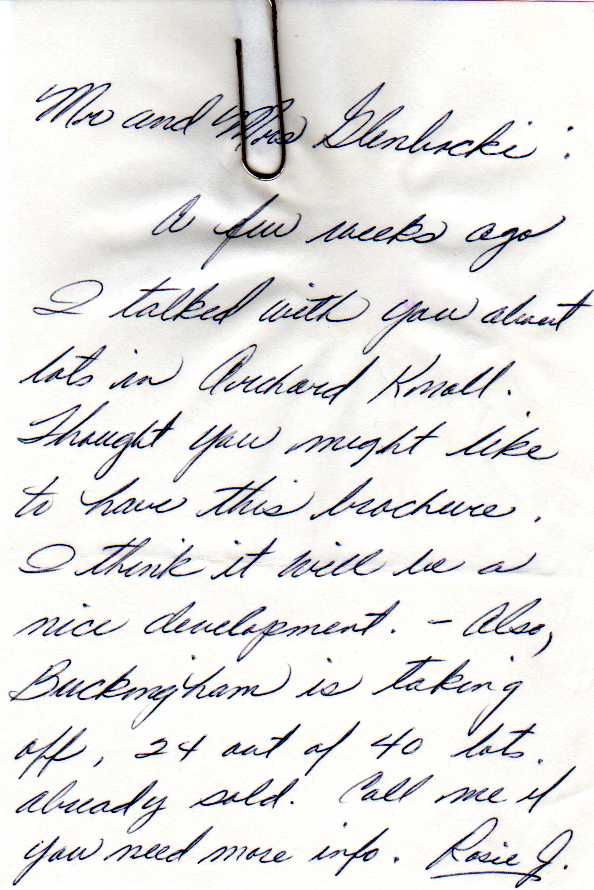 Mr and Mrs Glenbocki :
A few weeks ago
I talked with you about
lots in Orchard Knoll.
Thought you might like
to have this brochure.
I think it will be a
nice development. - Also,
Buckingham is taking
off, 24 out of 40 lots
already sold. Call me if
you need more info. Rosie J.